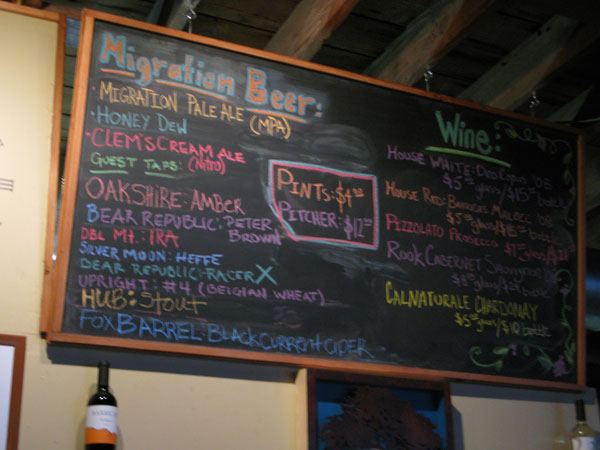 Migration Beer:
• Migration Pale Ale (MPA)
• Honey Dew
• Clem's Cream Ale
Guest Taps: (Nitro)
Oakshire: Amber
Bear Republic: Peter Brown
Dbl Mt.: IRA
Silver Moon: Heffe
Bear Republic: Racer X
Upright: #4 (Belgian Wheat)
HUB: Stout
Fox Barrel: Black Current Cider
Pints: $4
Pitcher: $12
Wine:
House White:
$5 glass/$15 bottle
House Red: Malbec '08
$5 glass/$15 bottle
Pizzolato Prosecco
Rook Cabernet Sauvignon
bottle
CalNaturale Chardonnay
$5 glass/